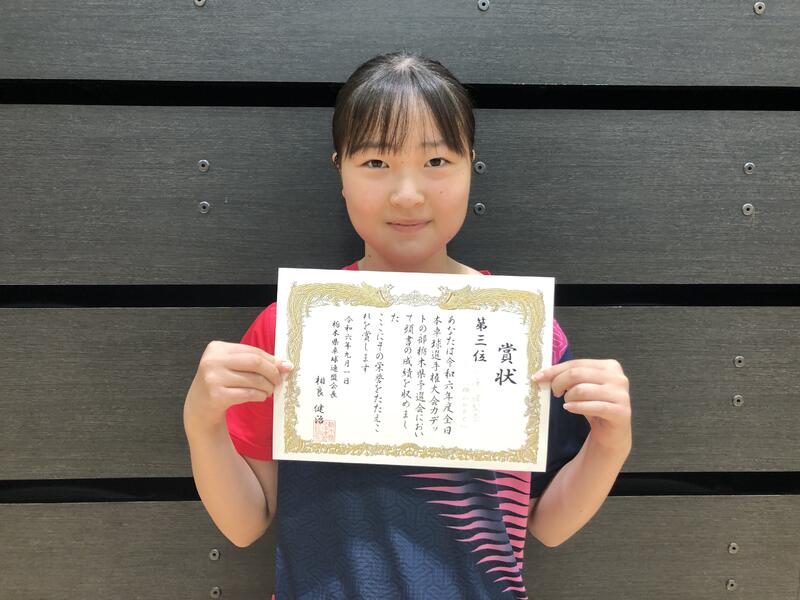 賞状
第三位
あなたは令和六年度全日
本卓球選手権大会カデッ
トの部栃木県予選会におい
て頭書の成績を収めまし
た
ここにその栄誉をたたえこ
れを賞します
令和六年九月一日
栃木県卓球連盟会長
相良健治